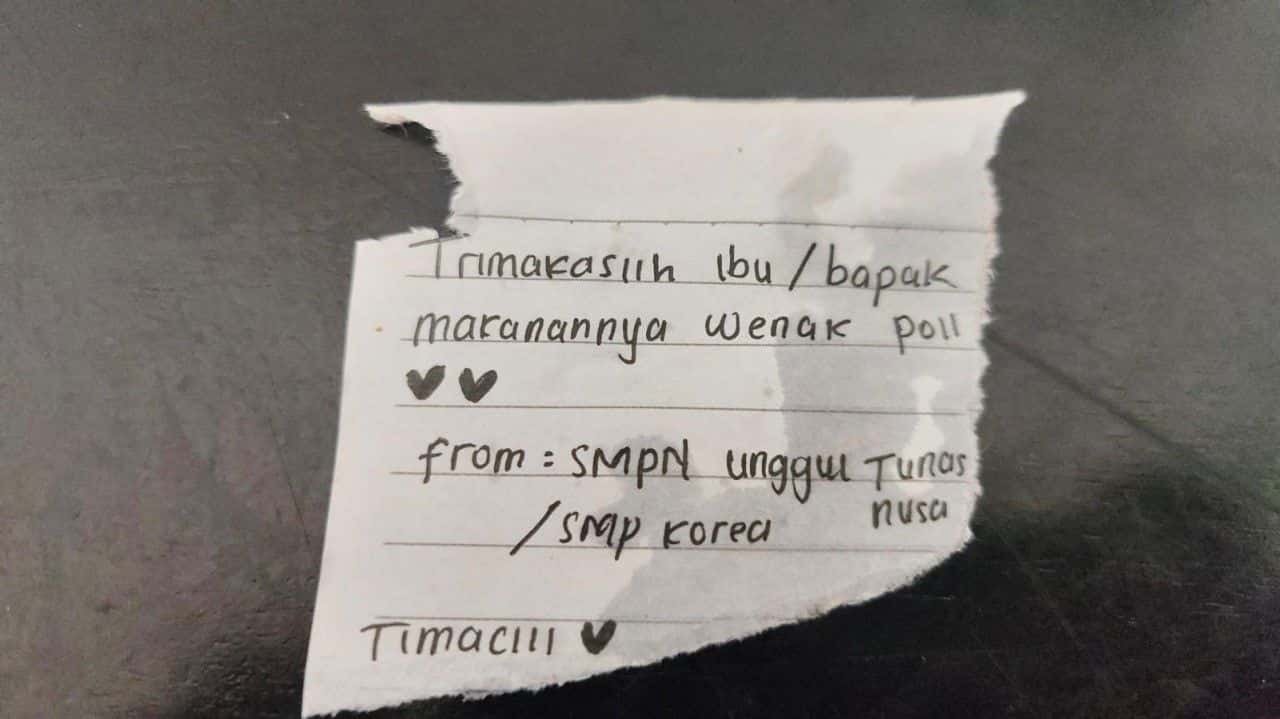 Trimakasiih ibu/bapak
makanannya wenak poll
♥♥
from: SMPN unggul Tunas
nusa
/SMP korea
Timaciii ♥